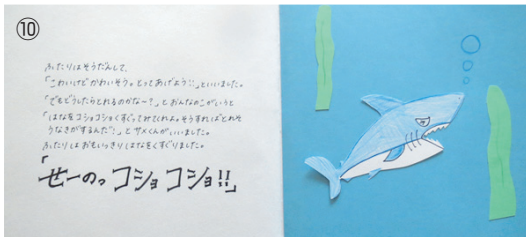 ⑩
ふたりはそうだんして、
「こわいけどかわいそう。とってあげよう!!」といいました。
「でもどうしたらとれるのかな〜?」とおんなのこがいうと
「はなをコショコショくすぐってみてくれよ。そうすればとれそ
うなきがするんだ?」とサメくんがいいました。
ふたりはおもいっきりはなをくすぐりました。
「せーのっコショコショ!!」